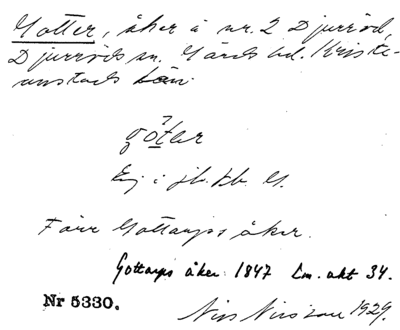 Gotter, åker å nr. 2 Djurröd,
Djurröds sn. Gärds hd. Kristi-
anstads län.
gòt̲er
Ej i jb. kb. U.
Förr Gottarps åker.
Gottarps åker 1847 Lm. akt 34.
Nr 5330.
Nils Nilsson 1929.